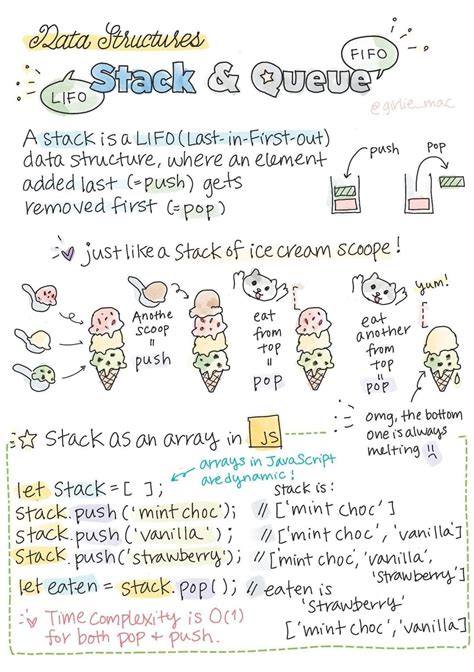 Data Structures
LIFO
Stack & Queue
FIFO
@girlie_mac
A stack is a LIFO (Last-in-First-out)
data structure, where an element
added last (=push) gets
removed first (=pop)
push
pop
just like a Stack of ice cream scoops!
Anothe
scoop
=
push
eat
from
top
=
pop
eat
another
from
top
=
pop
yum!
omg, the bottom
one is always
melting!!
Stack as an array in JS
arrays in JavaScript
are dynamic!
let Stack = [ ];
stack is:
stack.push('mint choc'); // ['mint choc']
stack.push('vanilla'); // ['mint choc', 'vanilla']
Stack.push('strawberry'); // ['mint choc', 'vanilla',
'strawberry']
let eaten = stack.pop(); // eaten is
'strawberry'
['mint choc', 'vanilla']
Time complexity is O(1)
for both pop + push.